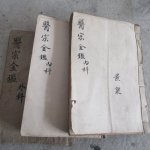 醫宗金鑑內科
醫宗金鑑內科
醫宗金鑑外科